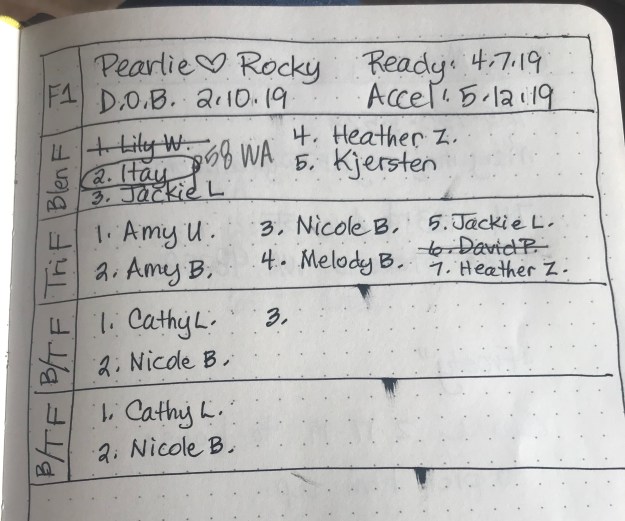 F1
Pearlie ♡ Rocky Ready: 4.7.19
D.O.B. 2.10.19 Accel: 5.12.19
Blen F
1. Lily W. 4. Heather Z.
2. Itay 58 WA 5. Kjersten
3. Jackie L
Tri F
1. Amy U. 3. Nicole B. 5. Jackie L.
6. David P.
2. Amy B. 4. Melody B. 7. Heather Z.
B/T F
1. Cathy L. 3.
2. Nicole B.
B/T F
1. Cathy L.
2. Nicole B.